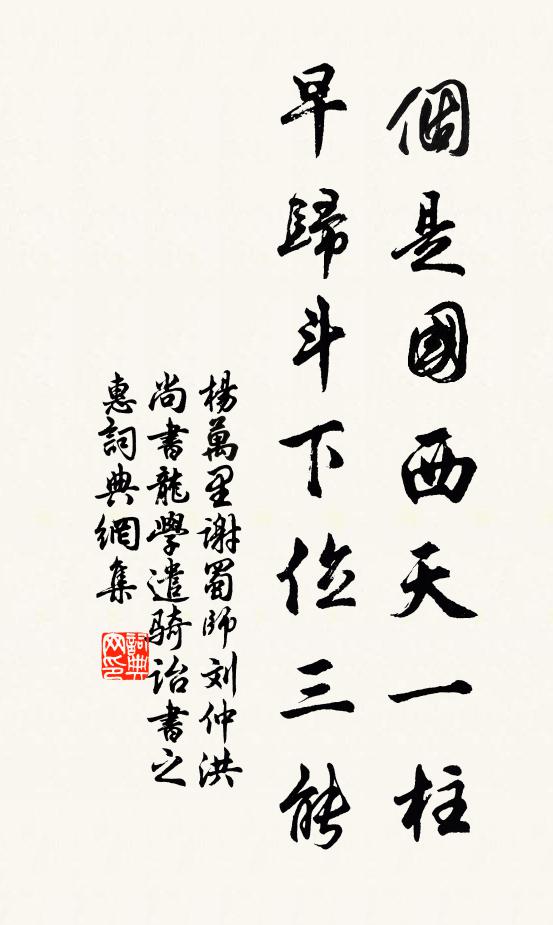 個是國西天一柱
早歸斗下位三能
楊萬里謝蜀師刘仲洪
尚書龍學遣騎詒書之
惠詞典網集
詞典网印